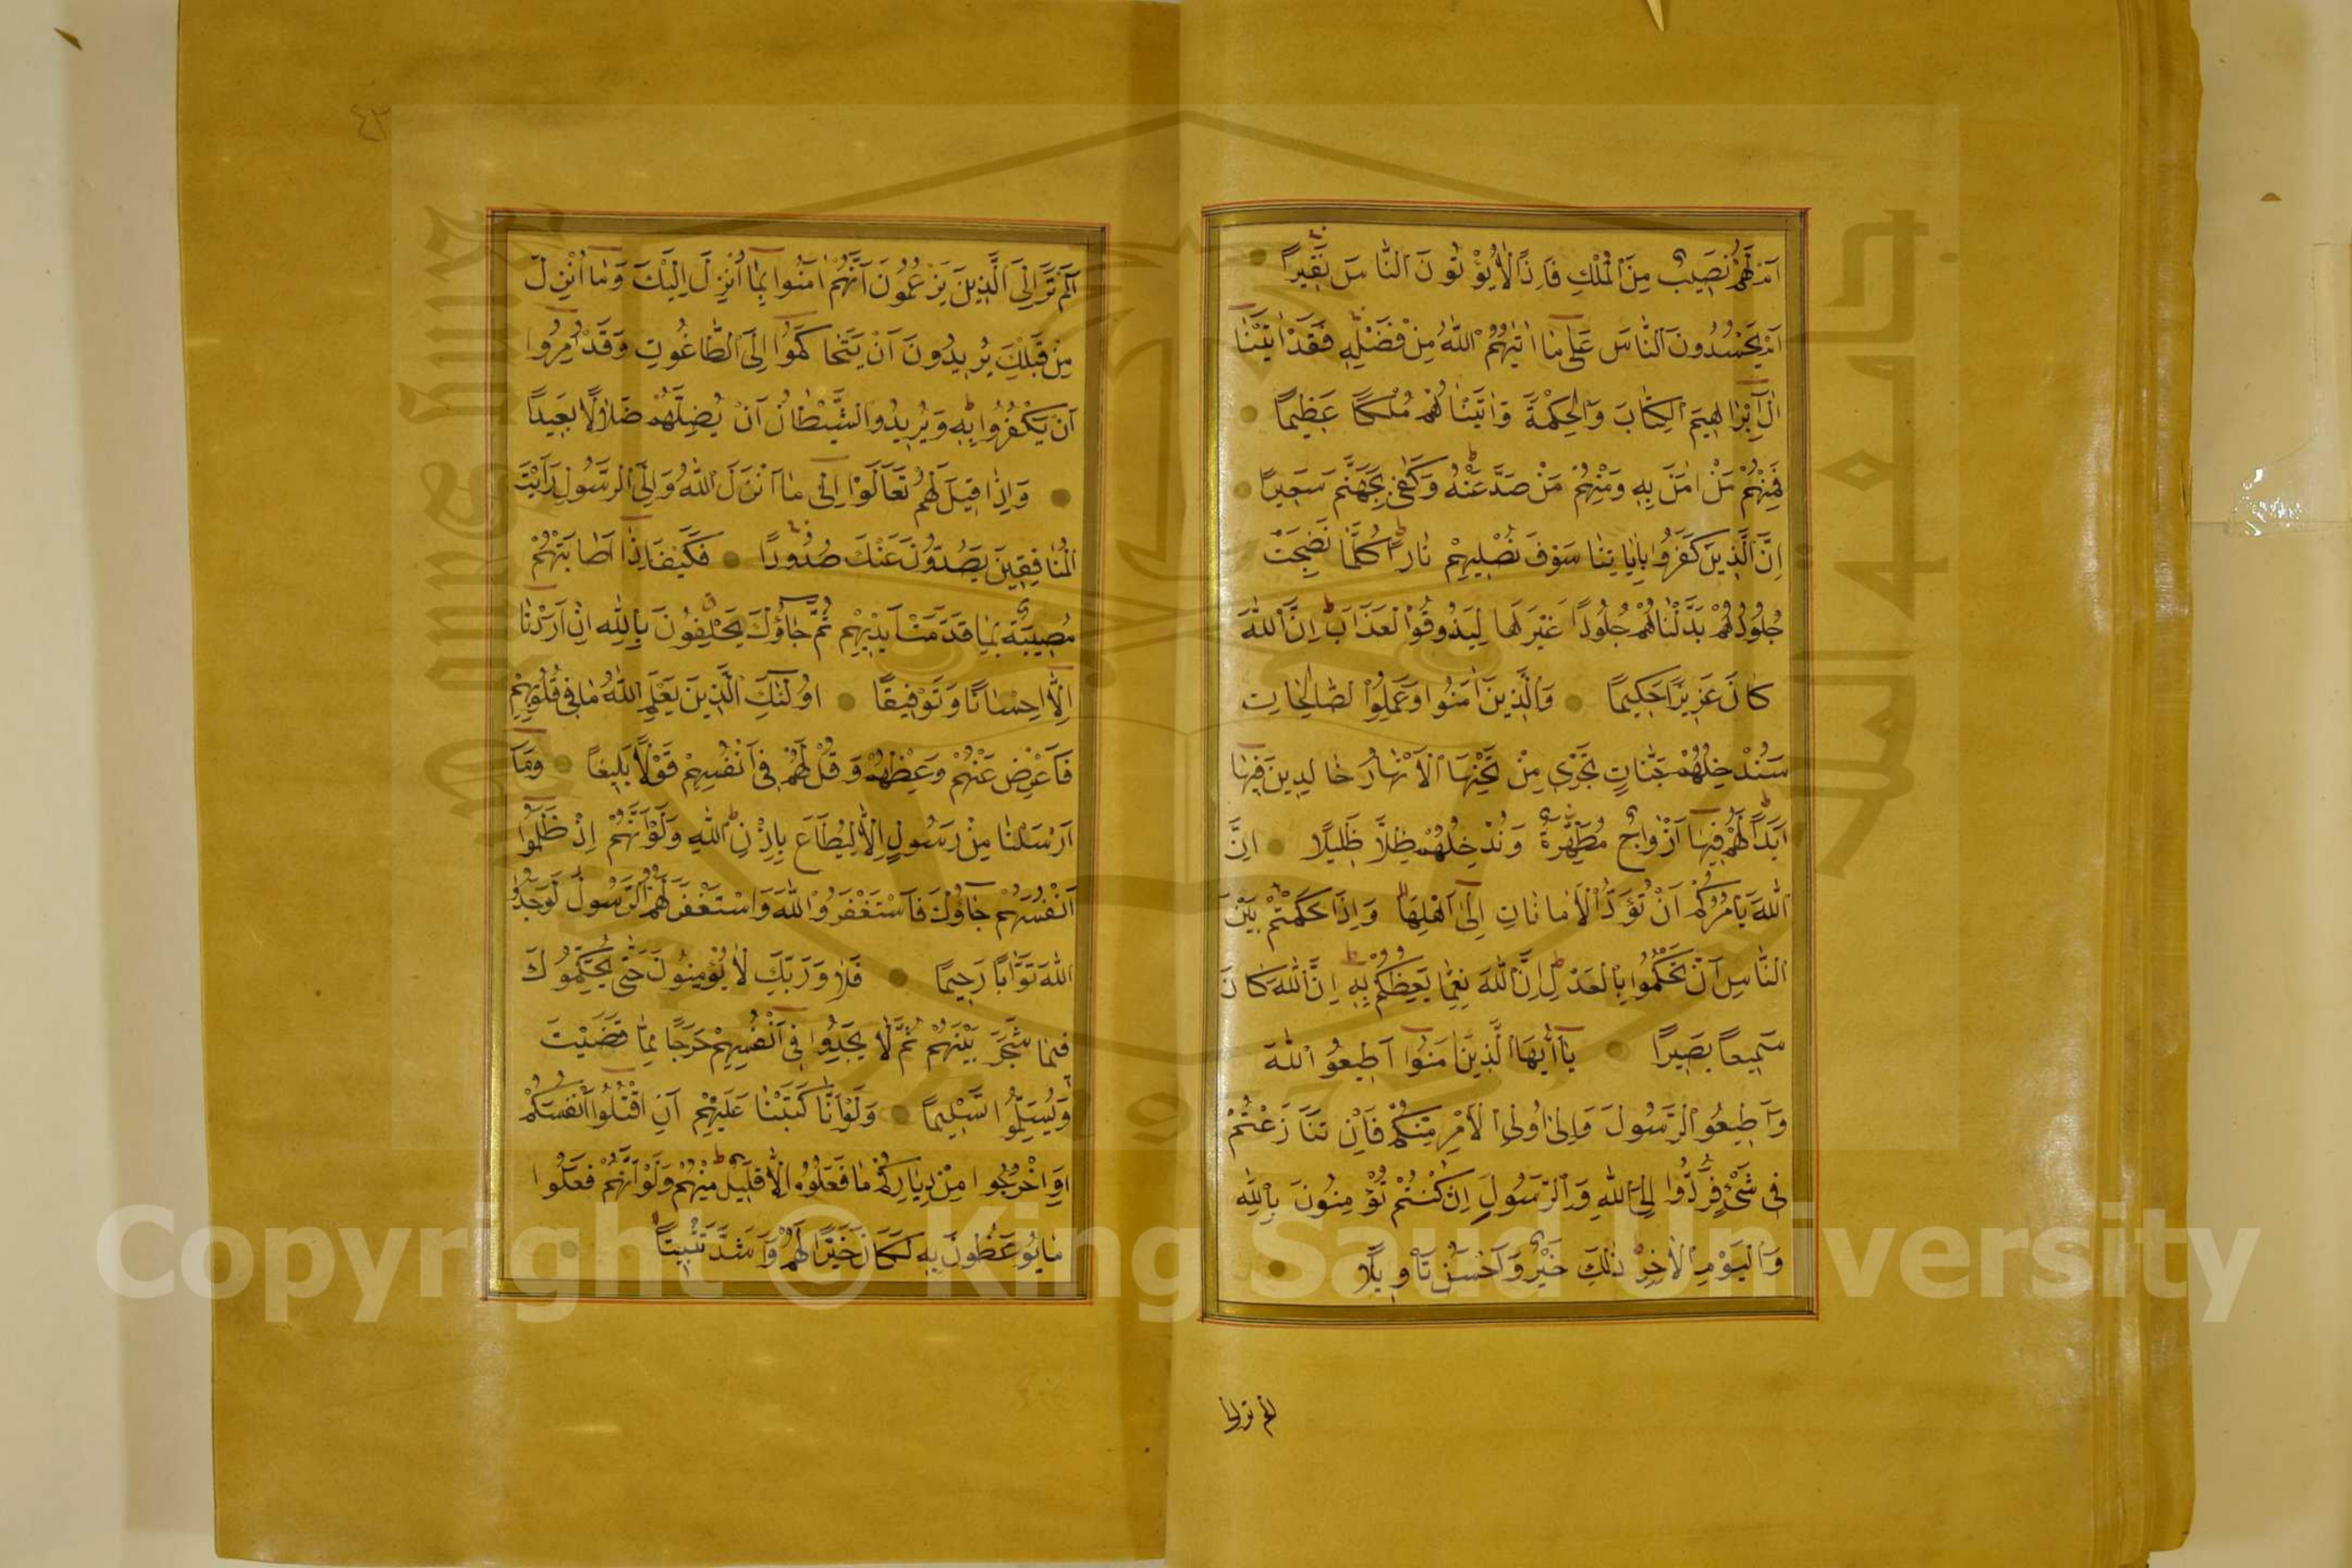 اَمْ لَهُمْ نَصِيبٌ مِنَ الْمُلْكِ فَاِذًا لَا يُؤْتُونَ النَّاسَ نَقِيرًا
اَمْ يَحْسُدُونَ النَّاسَ عَلٰى مَا اٰتٰيهُمُ اللّٰهُ مِنْ فَضْلِهِ فَقَدْ اٰتَيْنَا
اٰلَ اِبْرٰاهِيمَ الْكِتَابَ وَالْحِكْمَةَ وَاٰتَيْنَاهُمْ مُلْكًا عَظِيمًا
فَمِنْهُمْ مَنْ اٰمَنَ بِهِ وَمِنْهُمْ مَنْ صَدَّ عَنْهُ وَكَفٰى بِجَهَنَّمَ سَعِيرًا
اِنَّ الَّذِينَ كَفَرُوا بِاٰيَاتِنَا سَوْفَ نُصْلِيهِمْ نَارًا كُلَّمَا نَضِجَتْ
جُلُودُهُمْ بَدَّلْنَاهُمْ جُلُودًا غَيْرَهَا لِيَذُوقُوا الْعَذَابَ اِنَّ اللّٰهَ
كَانَ عَزِيزًا حَكِيمًا وَالَّذِينَ اٰمَنُوا وَعَمِلُوا الصَّالِحَاتِ
سَنُدْخِلُهُمْ جَنَّاتٍ تَجْرِي مِنْ تَحْتِهَا الْاَنْهَارُ خَالِدِينَ فِيهَا
اَبَدًا لَهُمْ فِيهَا اَزْوَاجٌ مُطَهَّرَةٌ وَنُدْخِلُهُمْ ظِلًّا ظَلِيلًا اِنَّ
اللّٰهَ يَأْمُرُكُمْ اَنْ تُؤَدُّوا الْاَمَانَاتِ اِلٰى اَهْلِهَا وَاِذَا حَكَمْتُمْ بَيْنَ
النَّاسِ اَنْ تَحْكُمُوا بِالْعَدْلِ اِنَّ اللّٰهَ نِعِمَّا يَعِظُكُمْ بِهِ اِنَّ اللّٰهَ كَانَ
سَمِيعًا بَصِيرًا يَا اَيُّهَا الَّذِينَ اٰمَنُوا اَطِيعُوا اللّٰهَ
وَاَطِيعُوا الرَّسُولَ وَاُولِي الْاَمْرِ مِنْكُمْ فَاِنْ تَنَازَعْتُمْ
فِي شَيْءٍ فَرُدُّوهُ اِلَى اللّٰهِ وَالرَّسُولِ اِنْ كُنْتُمْ تُؤْمِنُونَ بِاللّٰهِ
وَالْيَوْمِ الْاٰخِرِ ذٰلِكَ خَيْرٌ وَاَحْسَنُ تَأْوِيلًا
الم تر الى
٤٣
اَلَمْ تَرَ اِلَى الَّذِينَ يَزْعُمُونَ اَنَّهُمْ اٰمَنُوا بِمَا اُنْزِلَ اِلَيْكَ وَمَا اُنْزِلَ
مِنْ قَبْلِكَ يُرِيدُونَ اَنْ يَتَحَاكَمُوا اِلَى الطَّاغُوتِ وَقَدْ اُمِرُوا
اَنْ يَكْفُرُوا بِهِ وَيُرِيدُ الشَّيْطَانُ اَنْ يُضِلَّهُمْ ضَلَالًا بَعِيدًا
وَاِذَا قِيلَ لَهُمْ تَعَالَوْا اِلٰى مَا اَنْزَلَ اللّٰهُ وَاِلَى الرَّسُولِ رَاَيْتَ
الْمُنَافِقِينَ يَصُدُّونَ عَنْكَ صُدُودًا فَكَيْفَ اِذَا اَصَابَتْهُمْ
مُصِيبَةٌ بِمَا قَدَّمَتْ اَيْدِيهِمْ ثُمَّ جَاؤُكَ يَحْلِفُونَ بِاللّٰهِ اِنْ اَرَدْنَا
اِلَّا اِحْسَانًا وَتَوْفِيقًا اُولٰئِكَ الَّذِينَ يَعْلَمُ اللّٰهُ مَا فِي قُلُوبِهِمْ
فَاَعْرِضْ عَنْهُمْ وَعِظْهُمْ وَقُلْ لَهُمْ فِي اَنْفُسِهِمْ قَوْلًا بَلِيغًا وَمَا
اَرْسَلْنَا مِنْ رَسُولٍ اِلَّا لِيُطَاعَ بِاِذْنِ اللّٰهِ وَلَوْ اَنَّهُمْ اِذْ ظَلَمُوا
اَنْفُسَهُمْ جَاؤُكَ فَاسْتَغْفَرُوا اللّٰهَ وَاسْتَغْفَرَ لَهُمُ الرَّسُولُ لَوَجَدُوا
اللّٰهَ تَوَّابًا رَحِيمًا فَلَا وَرَبِّكَ لَا يُؤْمِنُونَ حَتّٰى يُحَكِّمُوكَ
فِيمَا شَجَرَ بَيْنَهُمْ ثُمَّ لَا يَجِدُوا فِي اَنْفُسِهِمْ حَرَجًا مِمَّا قَضَيْتَ
وَيُسَلِّمُوا تَسْلِيمًا وَلَوْ اَنَّا كَتَبْنَا عَلَيْهِمْ اَنِ اقْتُلُوا اَنْفُسَكُمْ
اَوِ اخْرُجُوا مِنْ دِيَارِكُمْ مَا فَعَلُوهُ اِلَّا قَلِيلٌ مِنْهُمْ وَلَوْ اَنَّهُمْ فَعَلُوا
مَا يُوعَظُونَ بِهِ لَكَانَ خَيْرًا لَهُمْ وَاَشَدَّ تَثْبِيتًا
Copyright © King Saud University